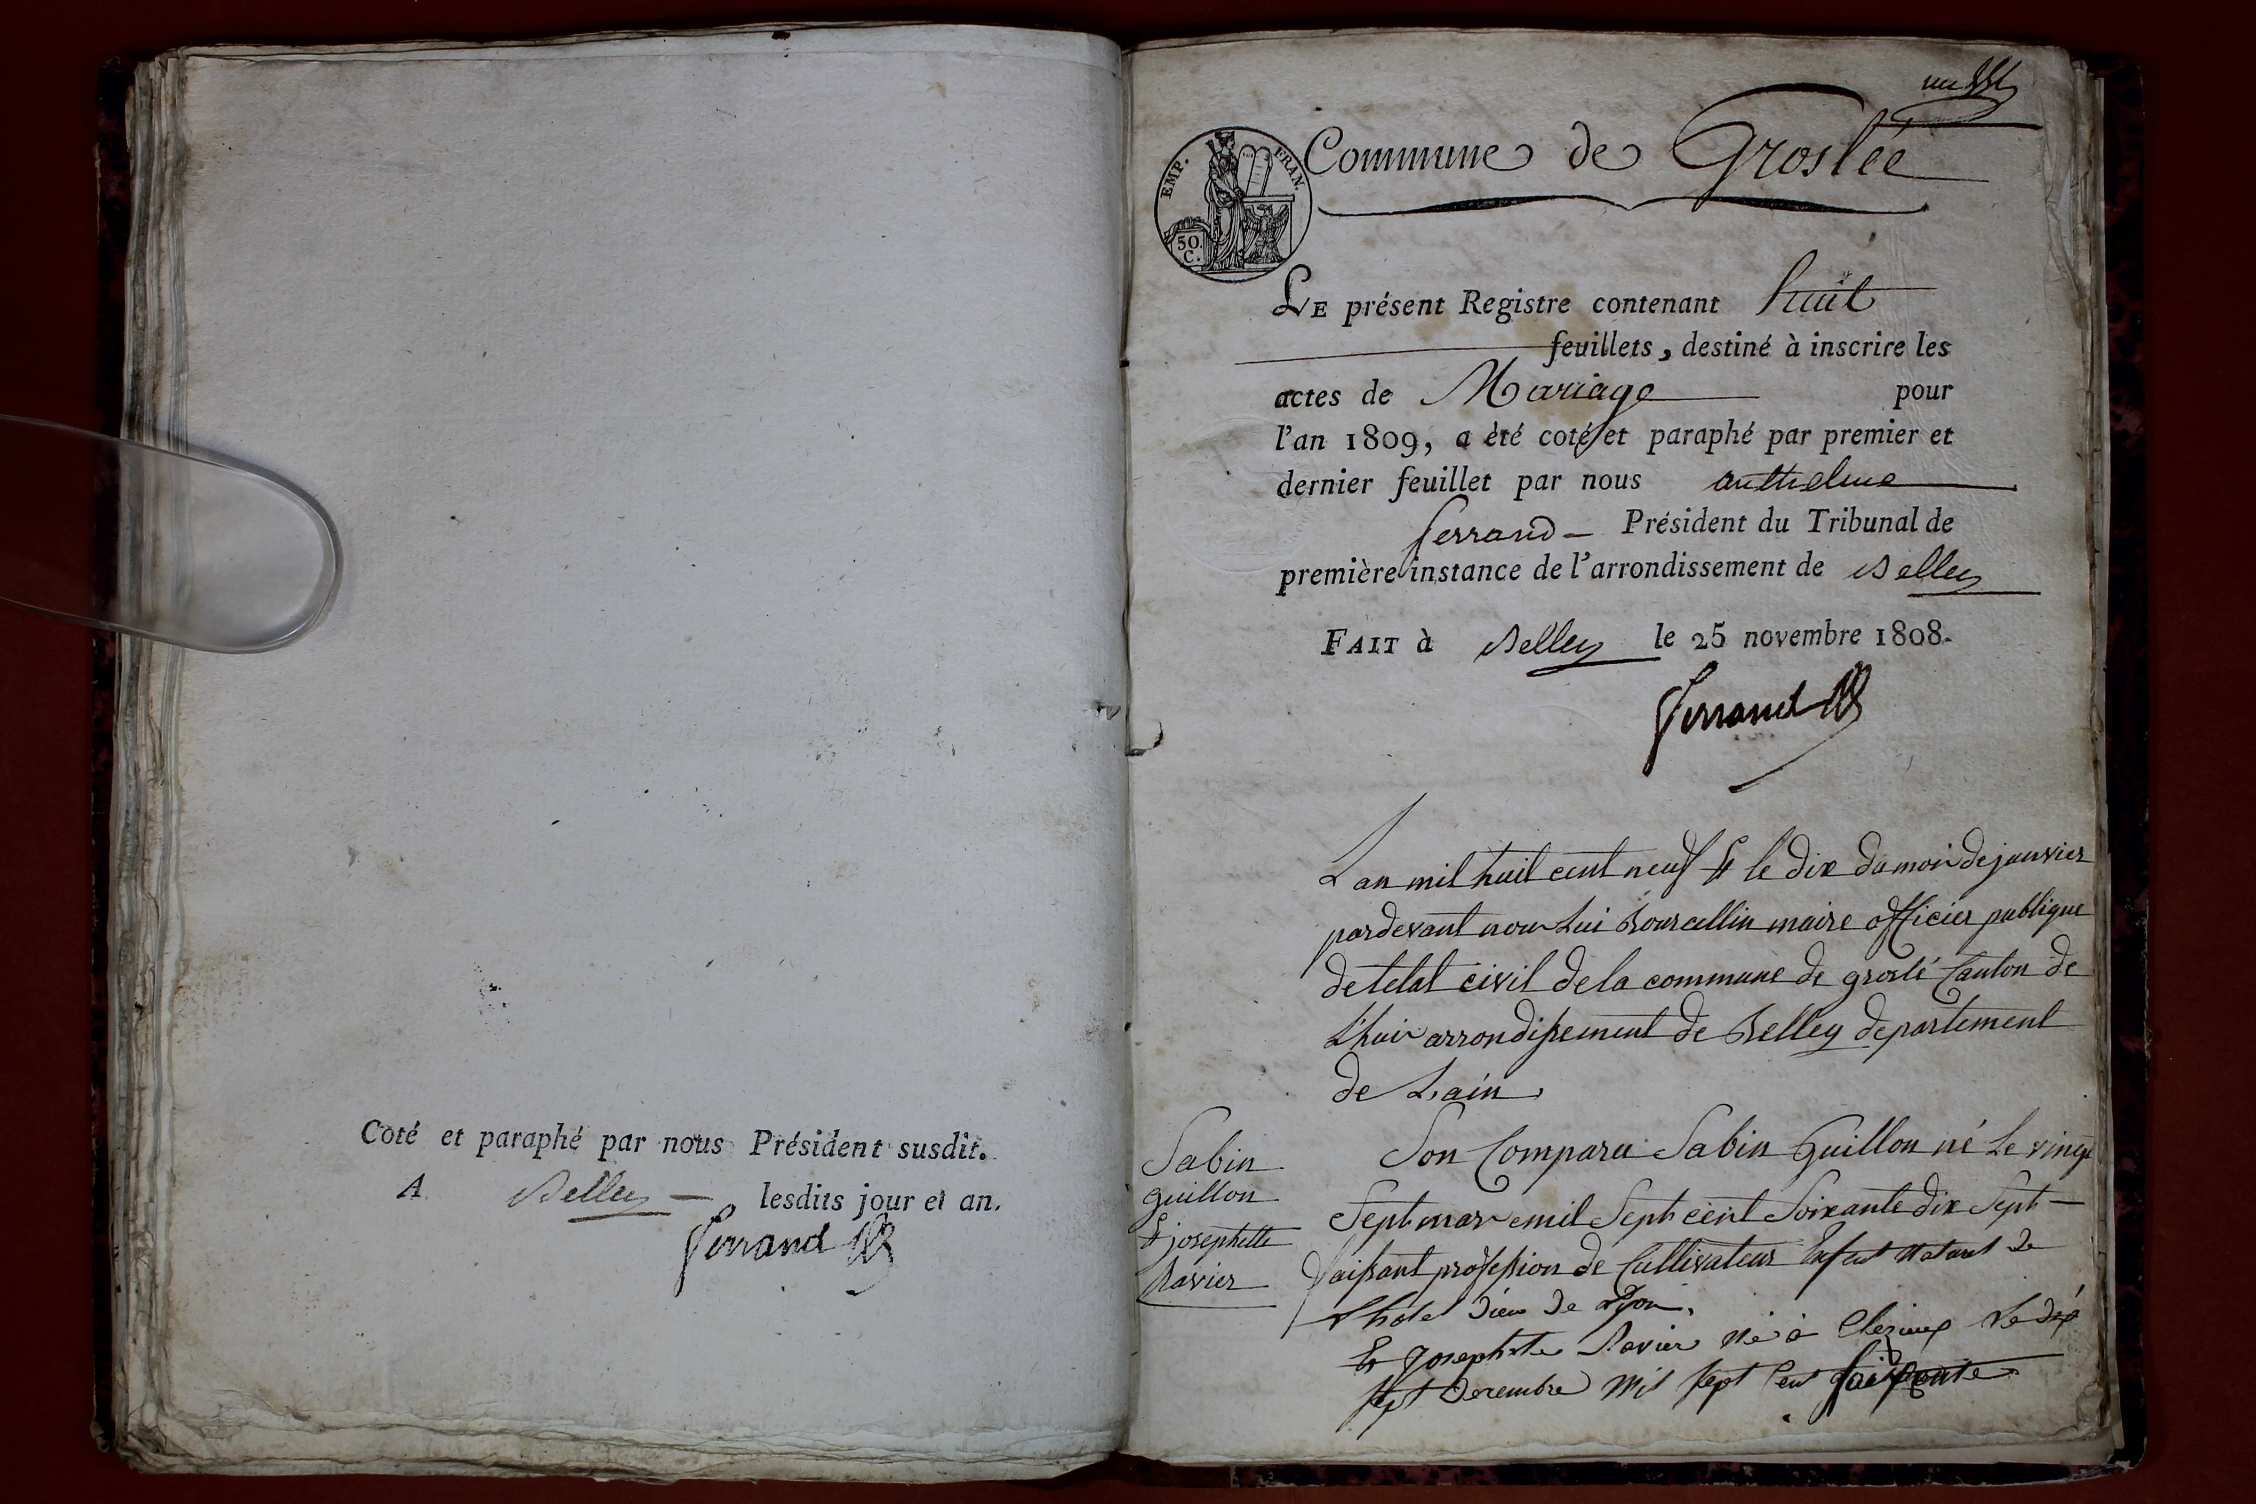 Coté et paraphé par nous Président susdit.
A Belley lesdits jour et an.
Ferrand
EMP. FRAN.
50.
C.
Commune de Groslée
LE présent Registre contenant huit
feuillets, destiné à inscrire les
actes de Mariage pour
l'an 1809, a été coté et paraphé par premier et
dernier feuillet par nous anthelme
ferrand Président du Tribunal de
première instance de l'arrondissement de Belley
FAIT à Belley le 25 novembre 1808.
Ferrand
Lan mil huit cent neuf & le dix du mois de janvier
pardevant nous Lui Bourcellin maire officier publique
de letat civil de la commune de groslé Canton de
L'huis arrondissement de Belley departement
de Lain
Sabin
guillon
& josephette
Ravier
Son Comparu Sabin Guillon né Le vingt
Sept mars mil Sept cent Soixante dix Sept
faissant profession de Cultivateur Enfant naturel de
L'hotel dieu de Lyon.
Et Josephte Ravier né à Le dix
sept decembre mil sept cent soixante